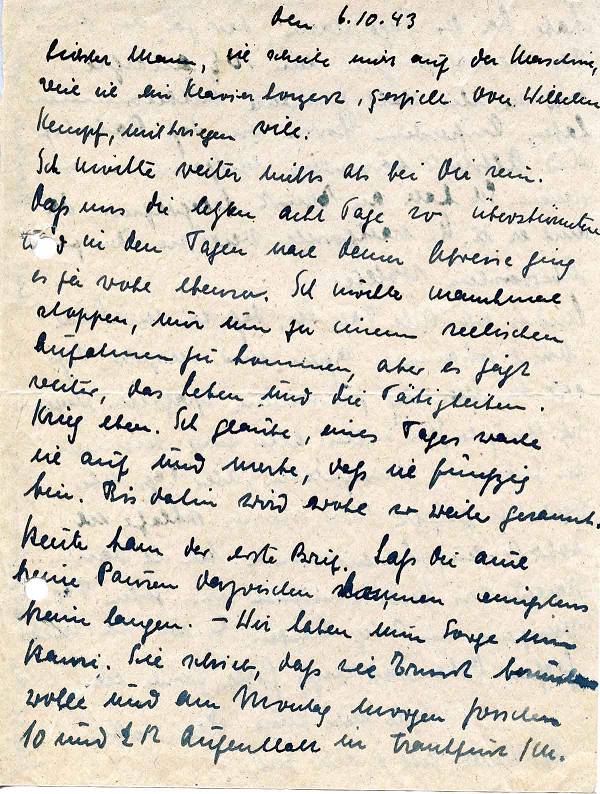 den 6.10.43
Liebster Mann, ich schreibe nicht auf der Maschine,
weil ich ein Klavierkonzert, gespielt von Wilhelm
Kempf, mitkriegen will.
Ich möchte weiter nichts als bei Dir sein.
Daß uns die letzten acht Tage so
und in den Tagen nach Deiner Abreise ging
es ja wohl ebenso. Ich möchte manchmal
stoppen, nur um zu einem seelischen
Aufatmen zu kommen, aber es jagt
weiter, das Leben und die Tätigkeiten.
Krieg eben. Ich glaube, eines Tages wache
ich auf und merke, daß ich fünfzig
bin. Bis dahin wird wohl so weiter gerannt.
Heute kam der erste Brief. Laß Du aune
keine Pausen dazwischen kommen wenigstens
keine langen. – Wir haben nun Sorge um
Hansi. Sie schrieb, daß sie besuchen
wolle und am Montag Morgen zwischen
10 und 12 Aufenthalt in Frankfurt /M.